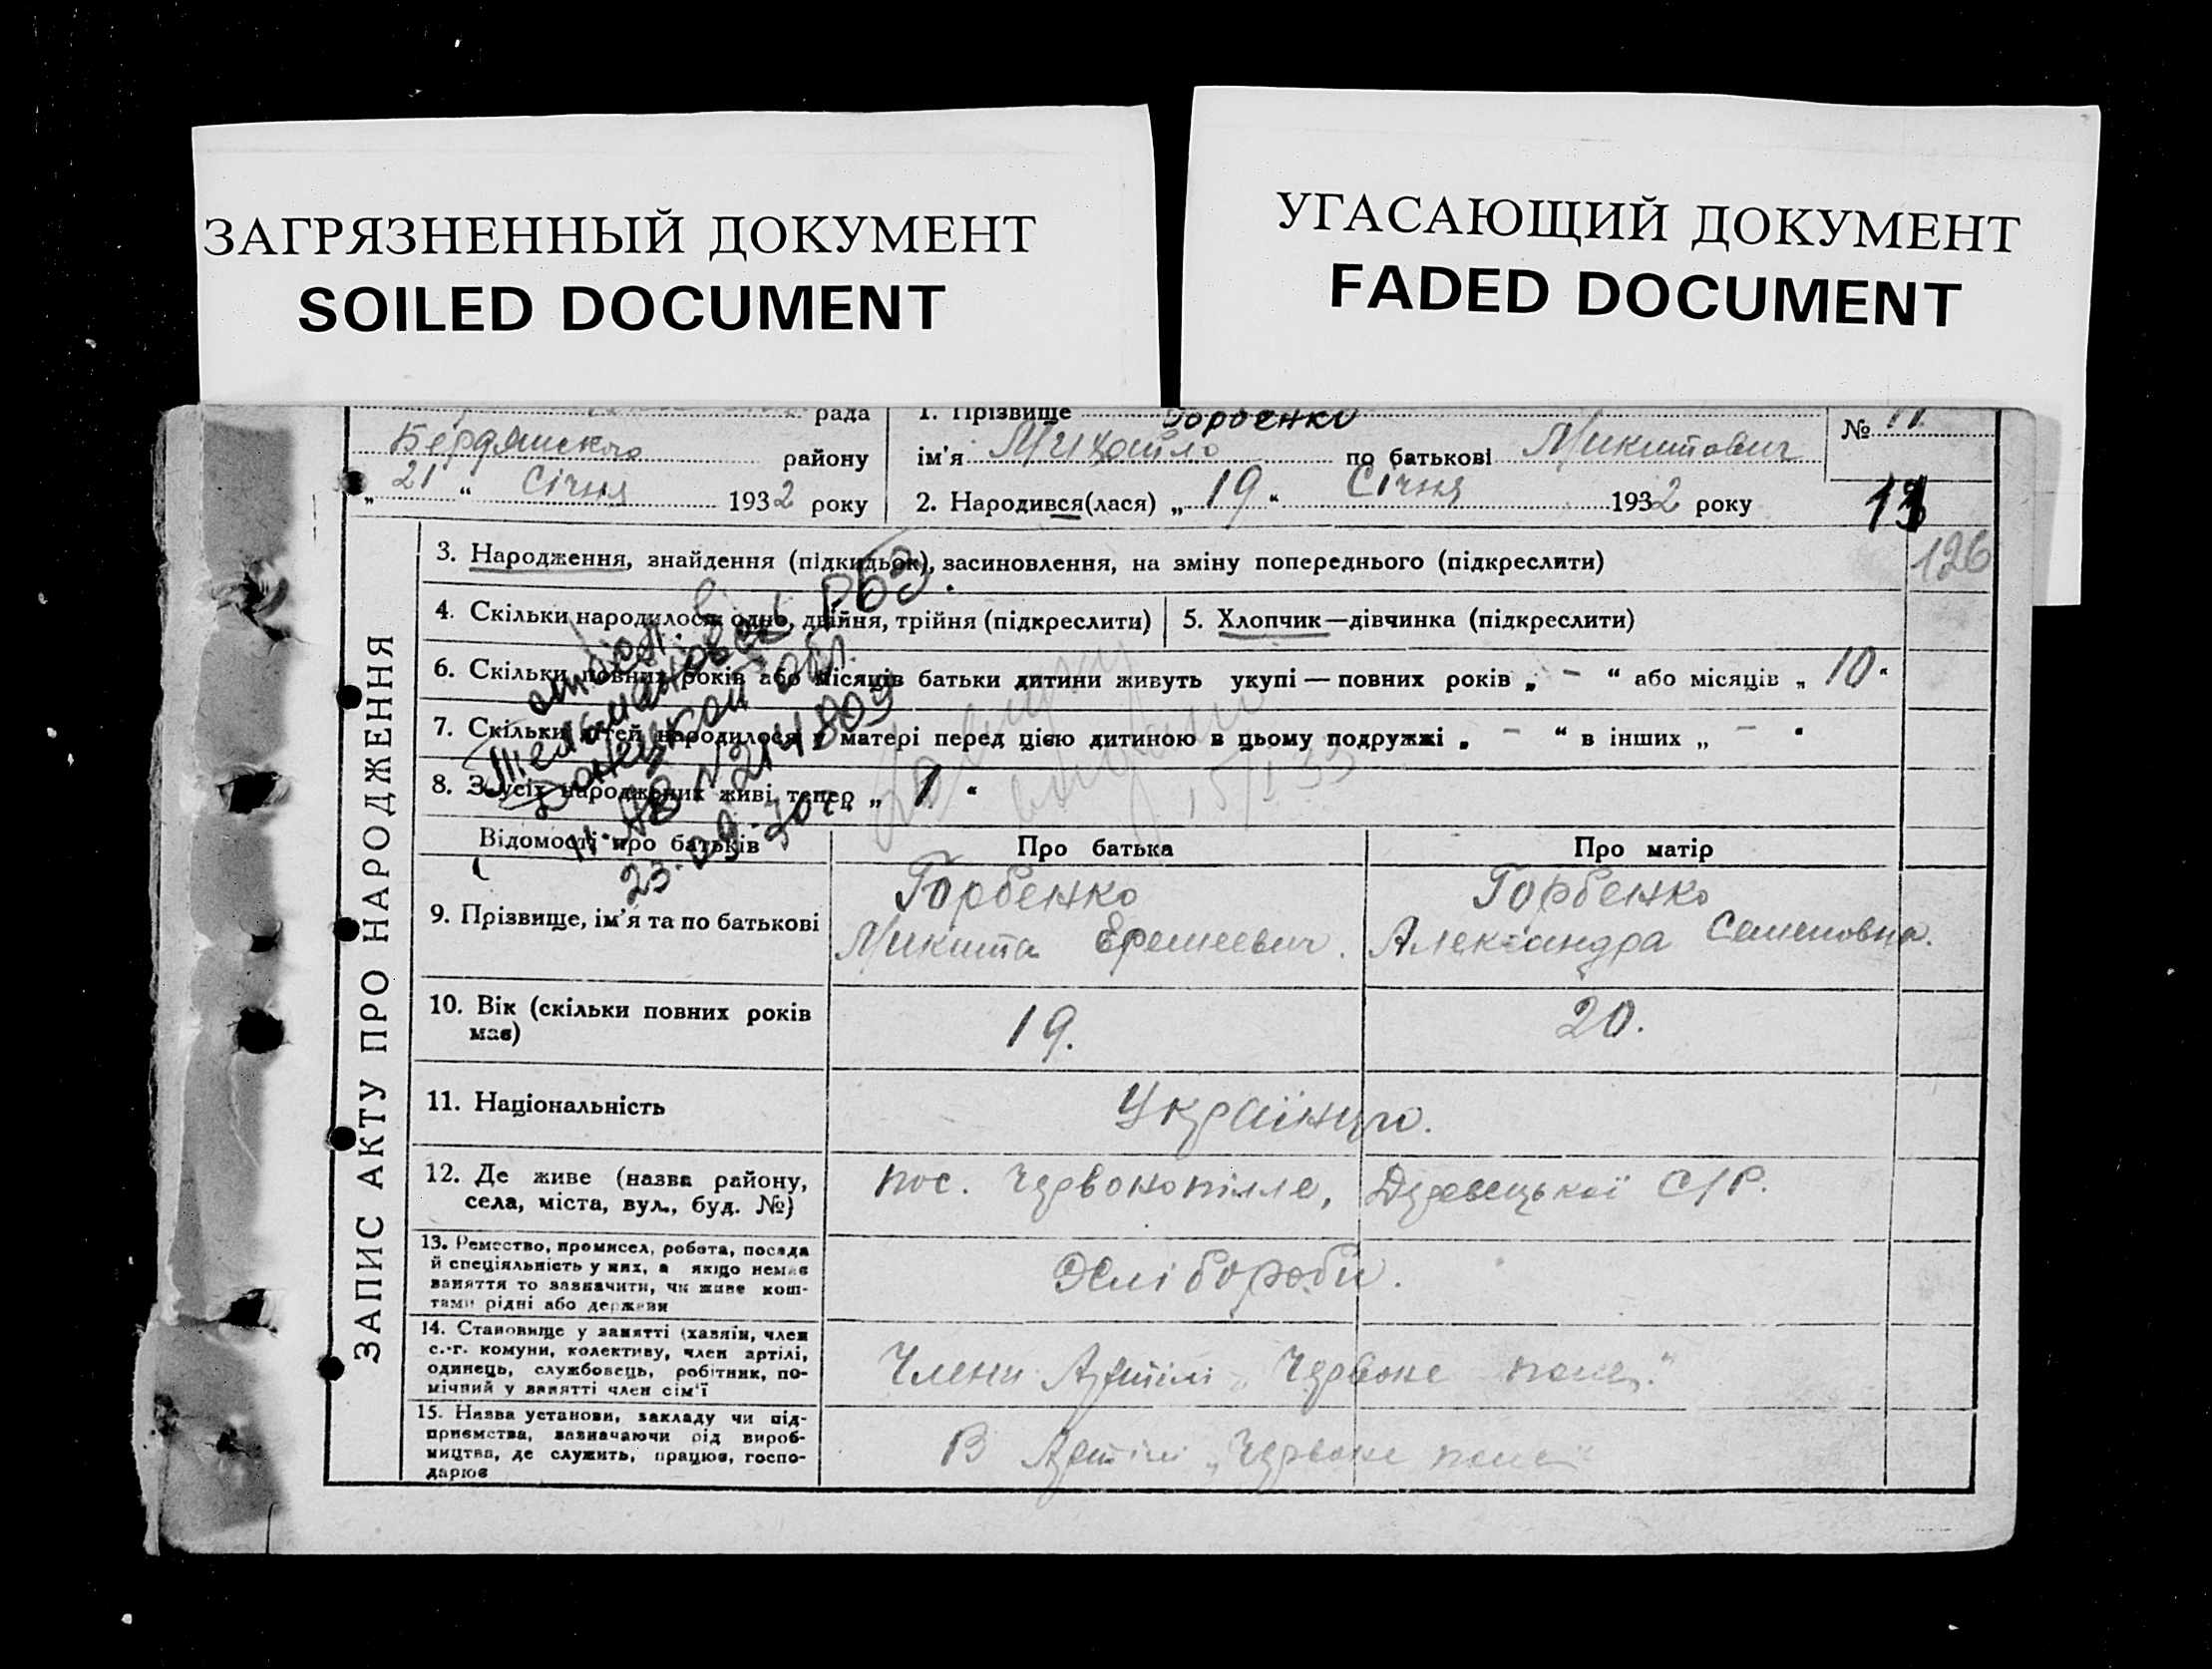 ЗАГРЯЗНЕННЫЙ ДОКУМЕНТ
SOILED DOCUMENT
УГАСАЮЩИЙ ДОКУМЕНТ
FADED DOCUMENT
рада
Бердянского району
„ 21 “ Січня 1932 року
1. Прізвище Горбенко
ім'я Михайло по батькові Микитович
2. Народився(лася) „ 19 “ Січня 1932 року
№ 11
11
126
ЗАПИС АКТУ ПРО НАРОДЖЕННЯ
3. Народження, знайдення (підкидьок), засиновлення, на зміну попереднього (підкреслити)
4. Скільки народилося: одно, двійня, трійня (підкреслити)
5. Хлопчик—дівчинка (підкреслити)
6. Скільки повних років або місяців батьки дитини живуть укупі — повних років „ – “ або місяців „ 10 “
7. Скільки дітей народилося у матері перед цією дитиною в цьому подружжі „ – “ в інших „ – “
8. З усіх народжених живі тепер „ 1 “
Донецкой обл.
23.09.70г.
15/I 33
Відомості про батьків
Про батька
Про матір
9. Прізвище, ім'я та по батькові
Горбенко
Микита Еремеевич.
Горбенко
Александра Семеновна.
10. Вік (скільки повних років
має)
19.
20.
11. Національність
Українці.
12. Де живе (назва району,
села, міста, вул., буд. №)
пос. Червонопілле, С/Р.
13. Ремество, промисел, робота, посада
й спеціяльність у них, а якщо немає
заняття то зазначити, чи живе кош-
тами рідні або держави
Хлібороби.
14. Становище у занятті (хазяїн, член
с.-г. комуни, колективу, член артілі,
одинець, службовець, робітник, по-
мічний у занятті член сім'ї
Члени Артілі „Червоне поле“
15. Назва установи, закладу чи під-
приємства, зазначаючи рід вироб-
ництва, де служить, працює, госпо-
дарює
В Артілі „Червоне поле“